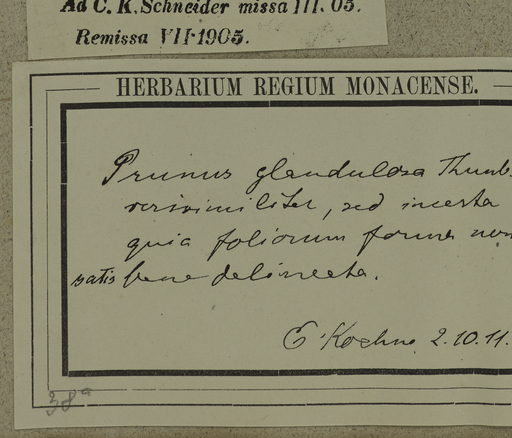 Ad C. K. Schneider missa III. 05.
Remissa VII·1905.
HERBARIUM REGIUM MONACENSE.
Prunus glandulosa Thunb.
verisimiliter, sed incerta
quia foliorum forma non
satis bene delineata.
E Koehne 2.10.11.
38a